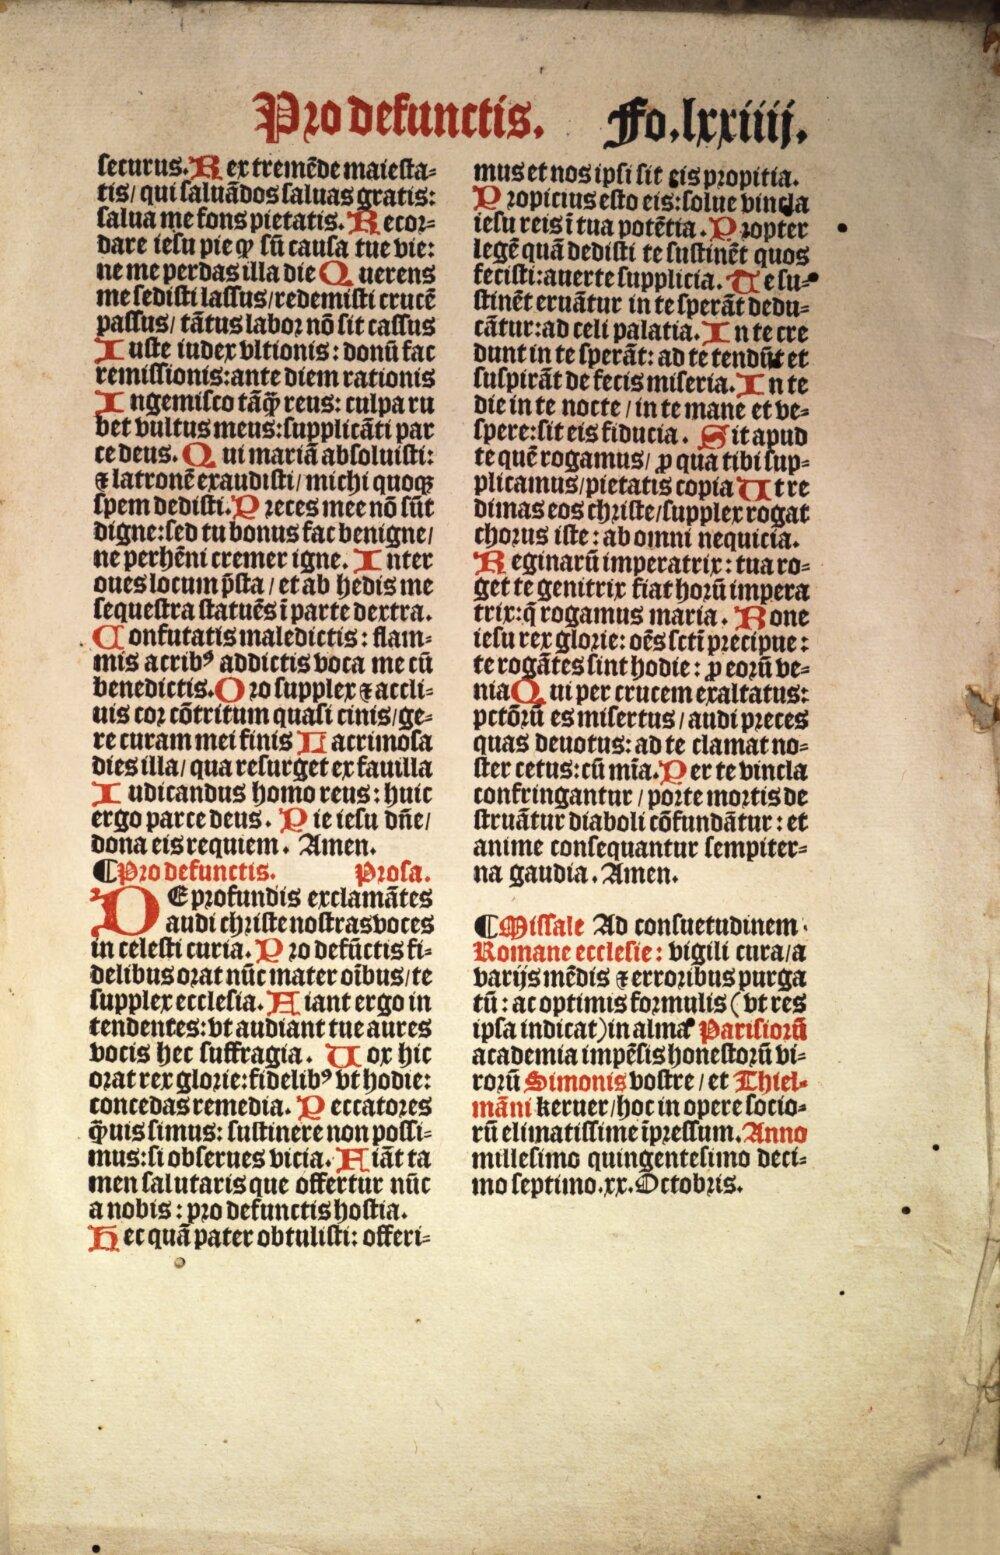 Pro defunctis. Fo. lxxiiij.
securus. Rex tremēde maiesta-
tis/ qui saluādos saluas gratis:
salua me fons pietatis. Recor-
dare iesu pie ꝙ sū causa tue vie:
ne me perdas illa die Querens
me sedisti lassus/redemisti crucē
passus/ tātus labor nō sit cassus
Iuste iudex vltionis: donū fac
remissionis:ante diem rationis
Ingemisco tāꝙ̄ reus: culpa ru
bet vultus meus:supplicāti par
ce deus. Qui mariā absoluisti:
⁊ latronē exaudisti/ michi quoqꝫ
spem dedisti. Preces mee nō sūt
digne:sed tu bonus fac benigne/
ne perhēni cremer igne. Inter
oues locum p̄sta/ et ab hedis me
sequestra statuēs ī parte dextra.
Confutatis maledictis: flam-
mis acribꝰ addictis voca me cū
benedictis. Oro supplex ⁊ accli-
uis cor cōtritum quasi cinis/ge-
re curam mei finis Lacrimosa
dies illa/ qua resurget ex fauilla
Iudicandus homo reus: huic
ergo parce deus. Pie iesu dn̄e/
dona eis requiem. Amen.
¶Pro defunctis. Prosa.
DE profundis exclamātes
audi christe nostras voces
in celesti curia. Pro defūctis fi-
delibus orat nūc mater oībus/te
supplex ecclesia. Hiant ergo in
tendentes:vt audiant tue aures
vocis hec suffragia. Uox hic
orat rex glorie:fidelibꝰ vt hodie:
concedas remedia. Peccatores
ꝙ̄uis simus: sustinere non possi-
mus:si obserues vicia. Hiāt ta
men salutaris que offertur nūc
a nobis: pro defunctis hostia.
Hec quā pater obtulisti: offeri-
mus et nos ipsi sit eis propitia.
Propicius esto eis:solue vincla
iesu reis ī tua potētia. Propter
legē quā dedisti te sustinēt quos
fecisti:auerte supplicia. Te su-
stinēt eruātur in te sperāt dedu-
cātur:ad celi palatia. In te cre
dunt in te sperāt: ad te tendūt et
suspirāt de fecis miseria. In te
die in te nocte/ in te mane et ve-
spere:sit eis fiducia. Sit apud
te quē rogamus/ ꝑ qua tibi sup-
plicamus/pietatis copia Ut re
dimas eos christe/supplex rogat
chorus iste: ab omni nequicia.
Reginarū imperatrix: tua ro-
get te genitrix fiat horū impera
trix:q̄ rogamus maria. Bone
iesu rex glorie: oēs sctī precipue:
te rogātes sint hodie: ꝑ eorū ve-
nia Qui per crucem exaltatus:
pctōrū es misertus/ audi preces
quas deuotus: ad te clamat no-
ster cetus:cū mīa. Per te vincla
confringantur/ porte mortis de
struātur diaboli cōfundātur: et
anime consequantur sempiter-
na gaudia. Amen.
¶Missale Ad consuetudinem
Romane ecclesie: vigili cura/a
varijs mēdis ⁊ erroribus purga
tū: ac optimis formulis (vt res
ipsa indicat) in alma Parisiorū
academia impēsis honestorū vi-
rorū Simonis vostre/ et Thiel-
māni keruer/hoc in opere socio-
rū elimatissime īpressum. Anno
millesimo quingentesimo deci-
mo septimo.xx.Octobris.